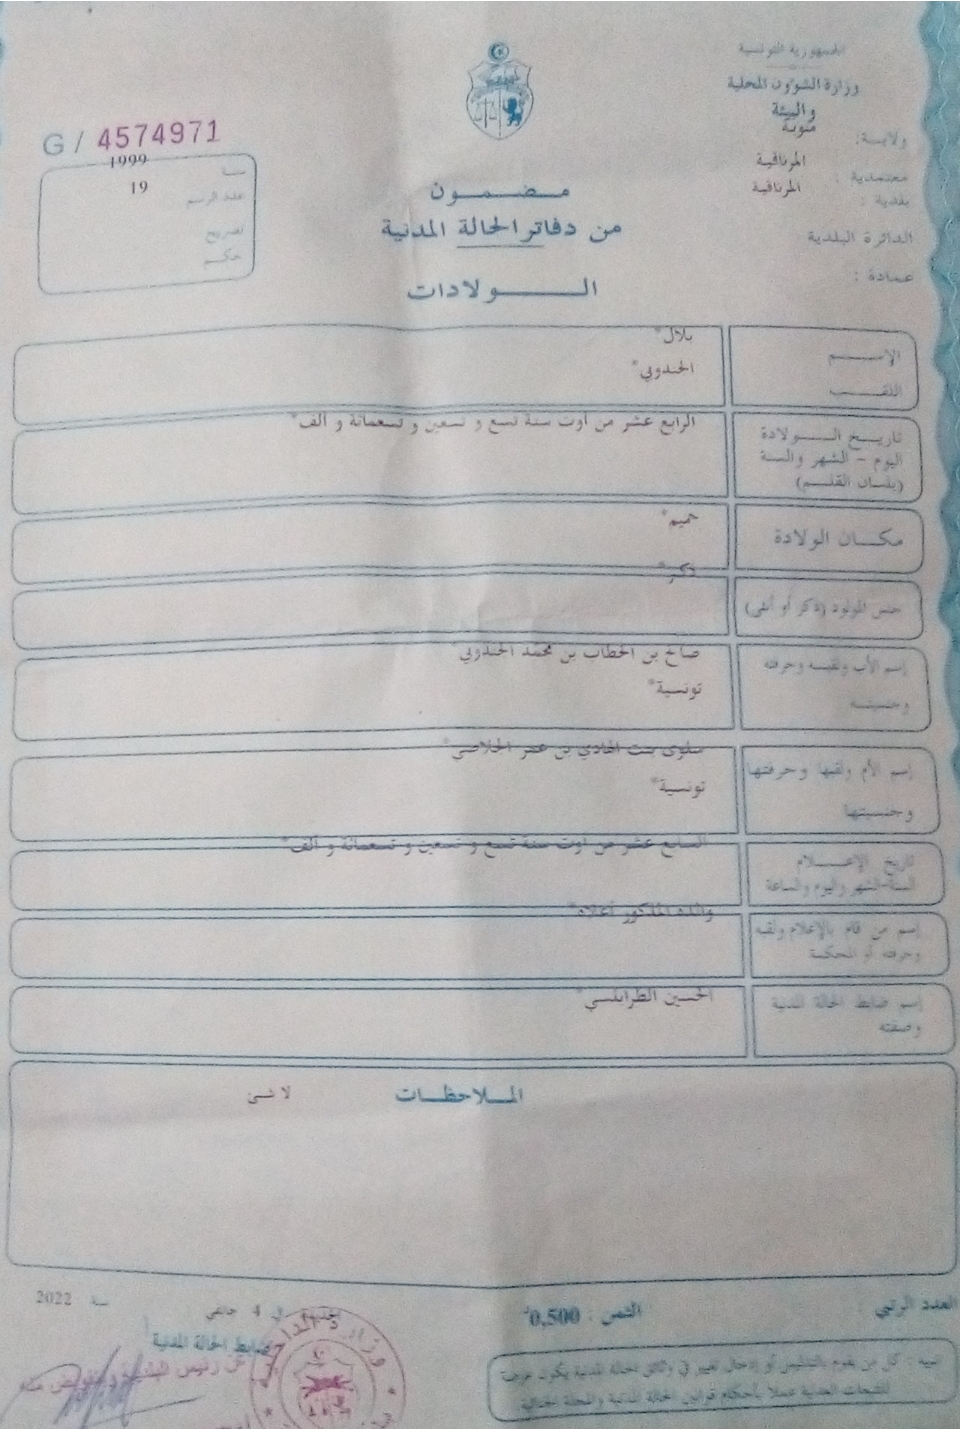 الجمهورية التونسية
وزارة الشؤون المحلية
والبيئة
ولاية: منوبة
معتمدية : المرناقية
بلدية : المرناقية
الدائرة البلدية
عمادة :
G / 4574971
سنة 1999
عدد الرسم 19
تصريح
حكم
مضمون
من دفاتر الحالة المدنية
الولادات
الإسم بلال*
اللقب الجندوبي*
تاريخ الولادة
اليوم - الشهر والسنة
(بلسان القلم)
الرابع عشر من أوت سنة تسع و تسعين و تسعمائة و ألف*
مكان الولادة
جنس المولود (ذكر أو أنثى) ذكر*
إسم الأب ولقبه وحرفته
وجنسيته
صالح بن الحطاب بن محمد الجندوبي*
تونسية*
إسم الأم ولقبها وحرفتها
وجنسيتها
سلوى بنت الهادي بن عمر
تونسية*
تاريخ الإعلام
السنة-الشهر واليوم والساعة
السابع عشر من أوت سنة تسع و تسعين و تسعمائة و ألف*
إسم من قام بالإعلام ولقبه
وحرفته أو المحكمة
والده المذكور أعلاه*
إسم ضابط الحالة المدنية
وصفته
الحسين الطرابلسي*
الملاحظات
لا شئ
العدد الرتبي :
الثمن : 0,500د
في 4 جانفي سنة 2022
ضابط الحالة المدنية
عن رئيس البلدية
تنبيه : كل من يقوم بالتدليس أو إدخال تغيير في وثائق الحالة المدنية يكون عرضة
للتتبعات العدلية عملا بأحكام قوانين الحالة المدنية والمجلة الجنائية